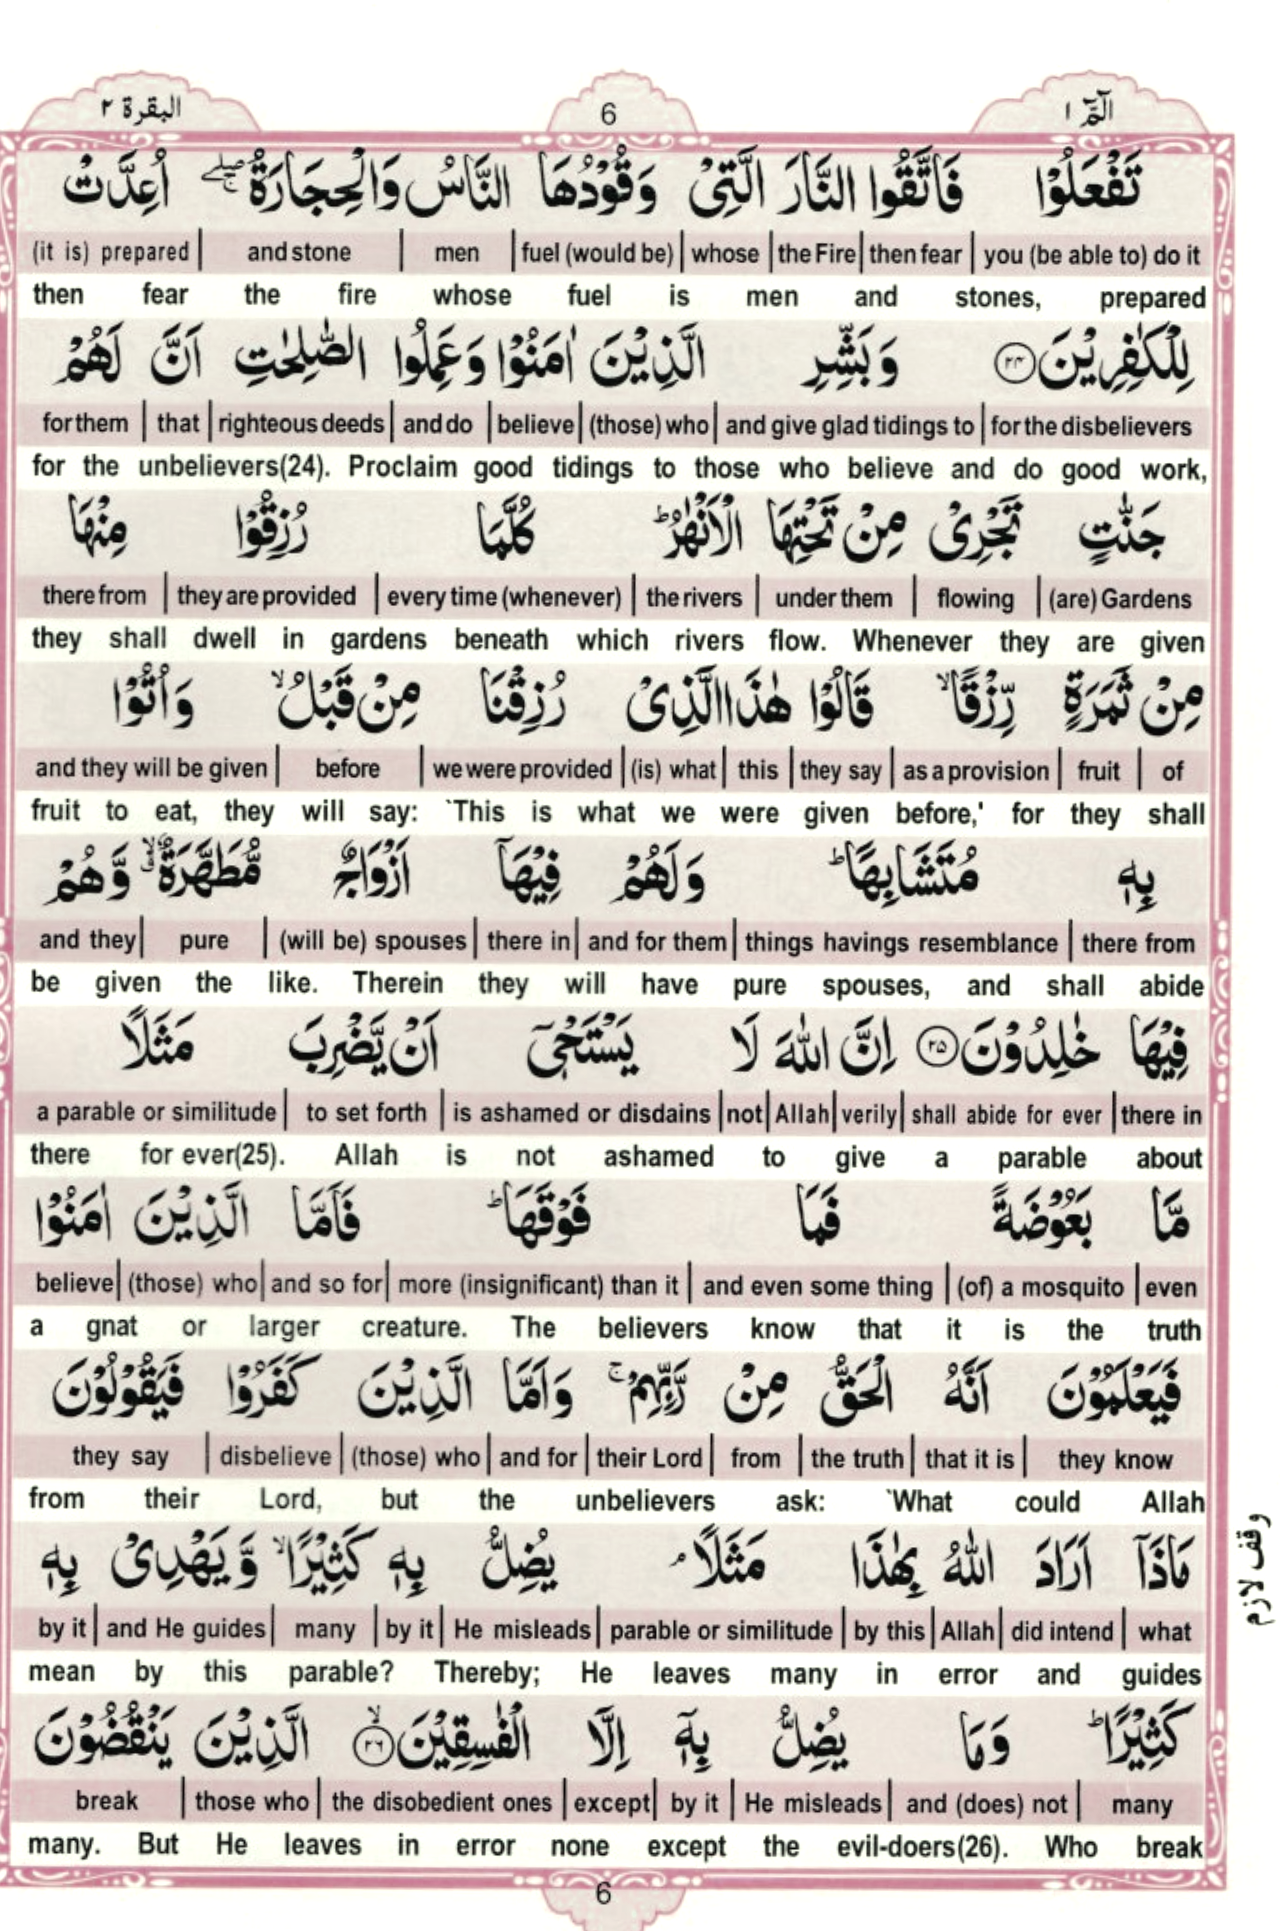 البقرة ٢ 6 الٓمّٓ ١
تَفْعَلُوْا فَاتَّقُوا النَّارَ الَّتِیْ وَقُوْدُهَا النَّاسُ وَالْحِجَارَةُ ۖۚ اُعِدَّتْ
(it is) prepared | and stone | men | fuel (would be) | whose | the Fire | then fear | you (be able to) do it
then fear the fire whose fuel is men and stones, prepared
لِلْكٰفِرِیْنَ ﴿۲۴﴾ وَبَشِّرِ الَّذِیْنَ اٰمَنُوْا وَعَمِلُوا الصّٰلِحٰتِ اَنَّ لَهُمْ
for them | that | righteous deeds | and do | believe | (those) who | and give glad tidings to | for the disbelievers
for the unbelievers(24). Proclaim good tidings to those who believe and do good work,
جَنّٰتٍ تَجْرِیْ مِنْ تَحْتِهَا الْاَنْهٰرُ ؕ كُلَّمَا رُزِقُوْا مِنْهَا
there from | they are provided | every time (whenever) | the rivers | under them | flowing | (are) Gardens
they shall dwell in gardens beneath which rivers flow. Whenever they are given
مِنْ ثَمَرَةٍ رِّزْقًا ۙ قَالُوْا هٰذَا الَّذِیْ رُزِقْنَا مِنْ قَبْلُ ۙ وَاُتُوْا
and they will be given | before | we were provided | (is) what | this | they say | as a provision | fruit | of
fruit to eat, they will say: `This is what we were given before,' for they shall
بِهٖ مُتَشَابِهًا ؕ وَلَهُمْ فِیْهَاۤ اَزْوَاجٌ مُّطَهَّرَةٌ ۙۗ وَّهُمْ
and they | pure | (will be) spouses | there in | and for them | things havings resemblance | there from
be given the like. Therein they will have pure spouses, and shall abide
فِیْهَا خٰلِدُوْنَ ﴿۲۵﴾ اِنَّ اللّٰهَ لَا یَسْتَحْیٖۤ اَنْ یَّضْرِبَ مَثَلًا
a parable or similitude | to set forth | is ashamed or disdains | not | Allah | verily | shall abide for ever | there in
there for ever(25). Allah is not ashamed to give a parable about
مَّا بَعُوْضَةً فَمَا فَوْقَهَا ؕ فَاَمَّا الَّذِیْنَ اٰمَنُوْا
believe | (those) who | and so for | more (insignificant) than it | and even some thing | (of) a mosquito | even
a gnat or larger creature. The believers know that it is the truth
فَیَعْلَمُوْنَ اَنَّهُ الْحَقُّ مِنْ رَّبِّهِمْ ۚ وَاَمَّا الَّذِیْنَ كَفَرُوْا فَیَقُوْلُوْنَ
they say | disbelieve | (those) who | and for | their Lord | from | the truth | that it is | they know
from their Lord, but the unbelievers ask: `What could Allah
مَاذَاۤ اَرَادَ اللّٰهُ بِهٰذَا مَثَلًا ۘ یُضِلُّ بِهٖ كَثِیْرًا ۙ وَّیَهْدِیْ بِهٖ
وقف لازم
by it | and He guides | many | by it | He misleads | parable or similitude | by this | Allah | did intend | what
mean by this parable? Thereby; He leaves many in error and guides
كَثِیْرًا ؕ وَمَا یُضِلُّ بِهٖۤ اِلَّا الْفٰسِقِیْنَ ﴿۲۶﴾ ۙ الَّذِیْنَ یَنْقُضُوْنَ
break | those who | the disobedient ones | except | by it | He misleads | and (does) not | many
many. But He leaves in error none except the evil-doers(26). Who break
6